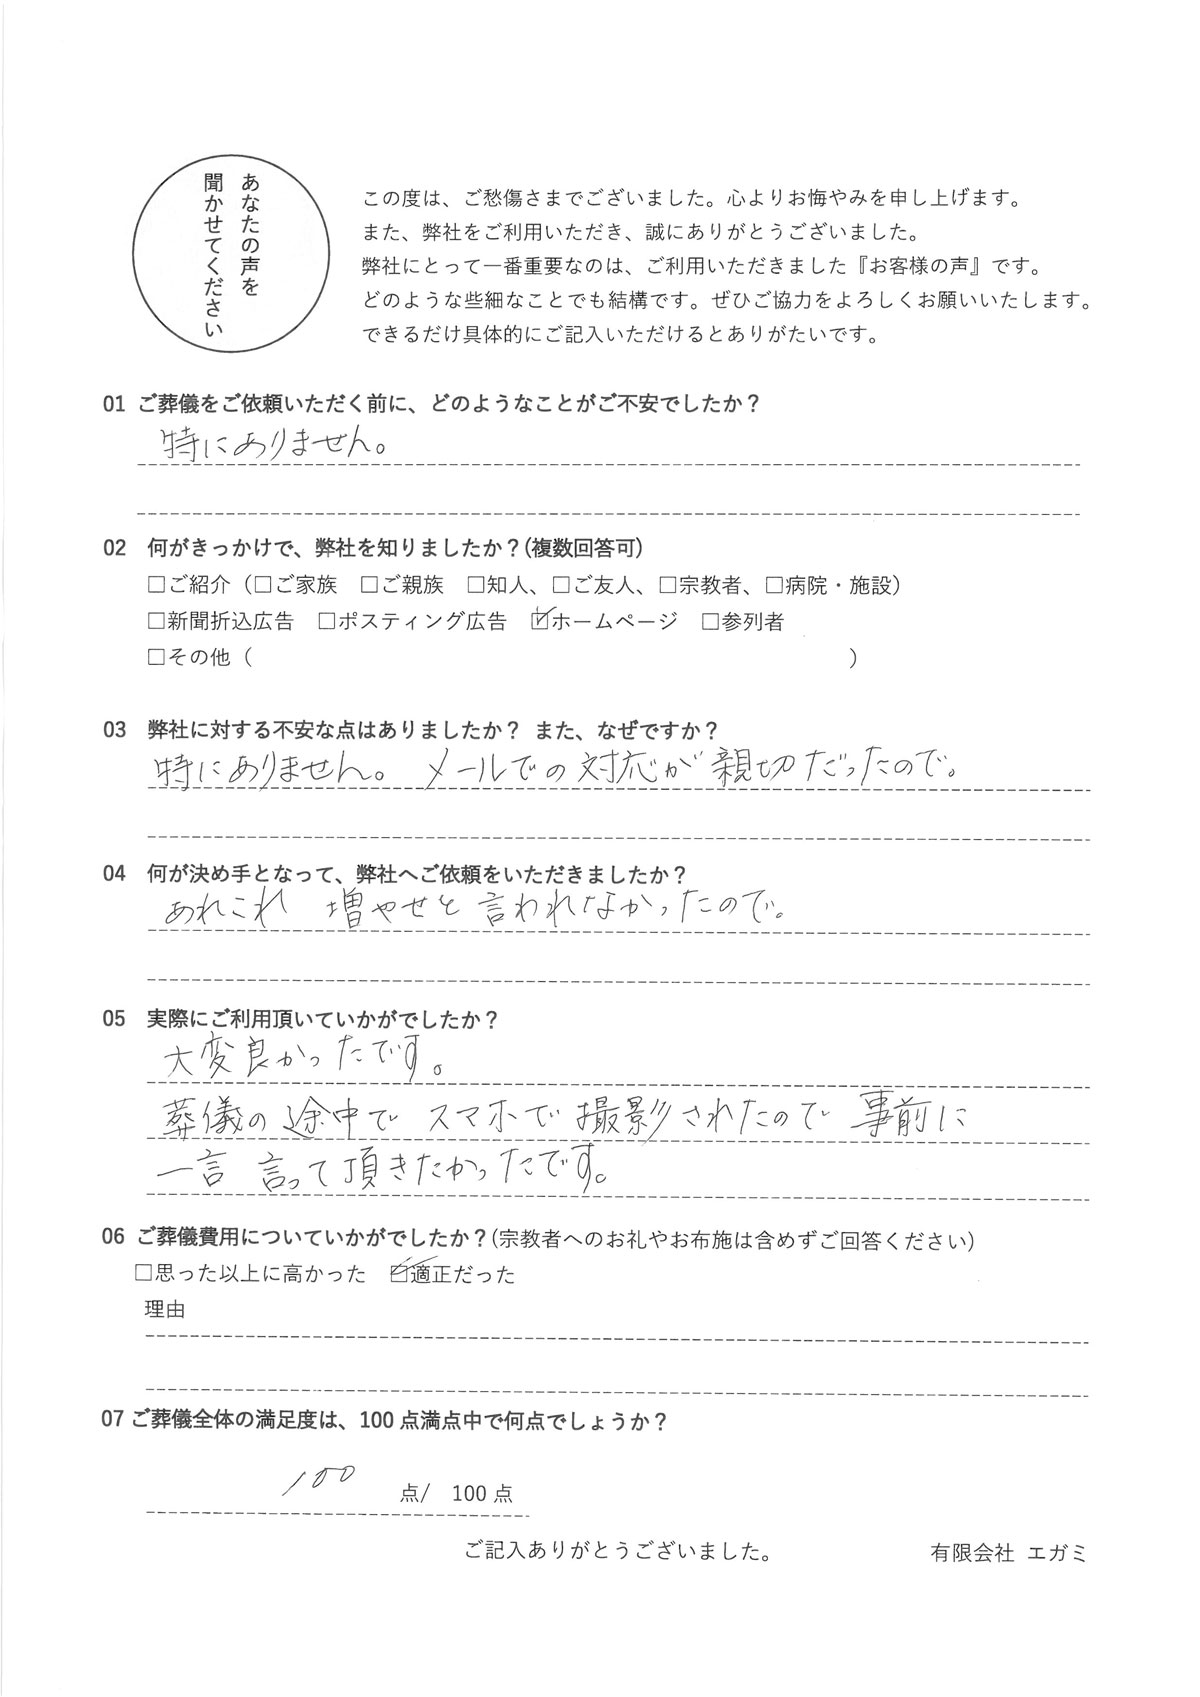 あなたの声を
聞かせてください
この度は、ご愁傷さまでございました。心よりお悔やみを申し上げます。
また、弊社をご利用いただき、誠にありがとうございました。
弊社にとって一番重要なのは、ご利用いただきました『お客様の声』です。
どのような些細なことでも結構です。ぜひご協力をよろしくお願いいたします。
できるだけ具体的にご記入いただけるとありがたいです。
01 ご葬儀をご依頼いただく前に、どのようなことがご不安でしたか？
特にありません。
02 何がきっかけで、弊社を知りましたか？(複数回答可)
□ご紹介（□ご家族 □ご親族 □知人、□ご友人、□宗教者、□病院・施設）
□新聞折込広告 □ポスティング広告 ☑ホームページ □参列者
□その他（ ）
03 弊社に対する不安な点はありましたか？ また、なぜですか？
特にありません。 メールでの対応が親切だったので。
04 何が決め手となって、弊社へご依頼をいただきましたか？
あれこれ 増やせと言われなかったので。
05 実際にご利用頂いていかがでしたか？
大変良かったです。
葬儀の途中で スマホで撮影されたので 事前に
一言 言って頂きたかったです。
06 ご葬儀費用についていかがでしたか？(宗教者へのお礼やお布施は含めずご回答ください)
□思った以上に高かった ☑適正だった
理由
07 ご葬儀全体の満足度は、100 点満点中で何点でしょうか？
100 点/ 100 点
ご記入ありがとうございました。 有限会社 エガミ